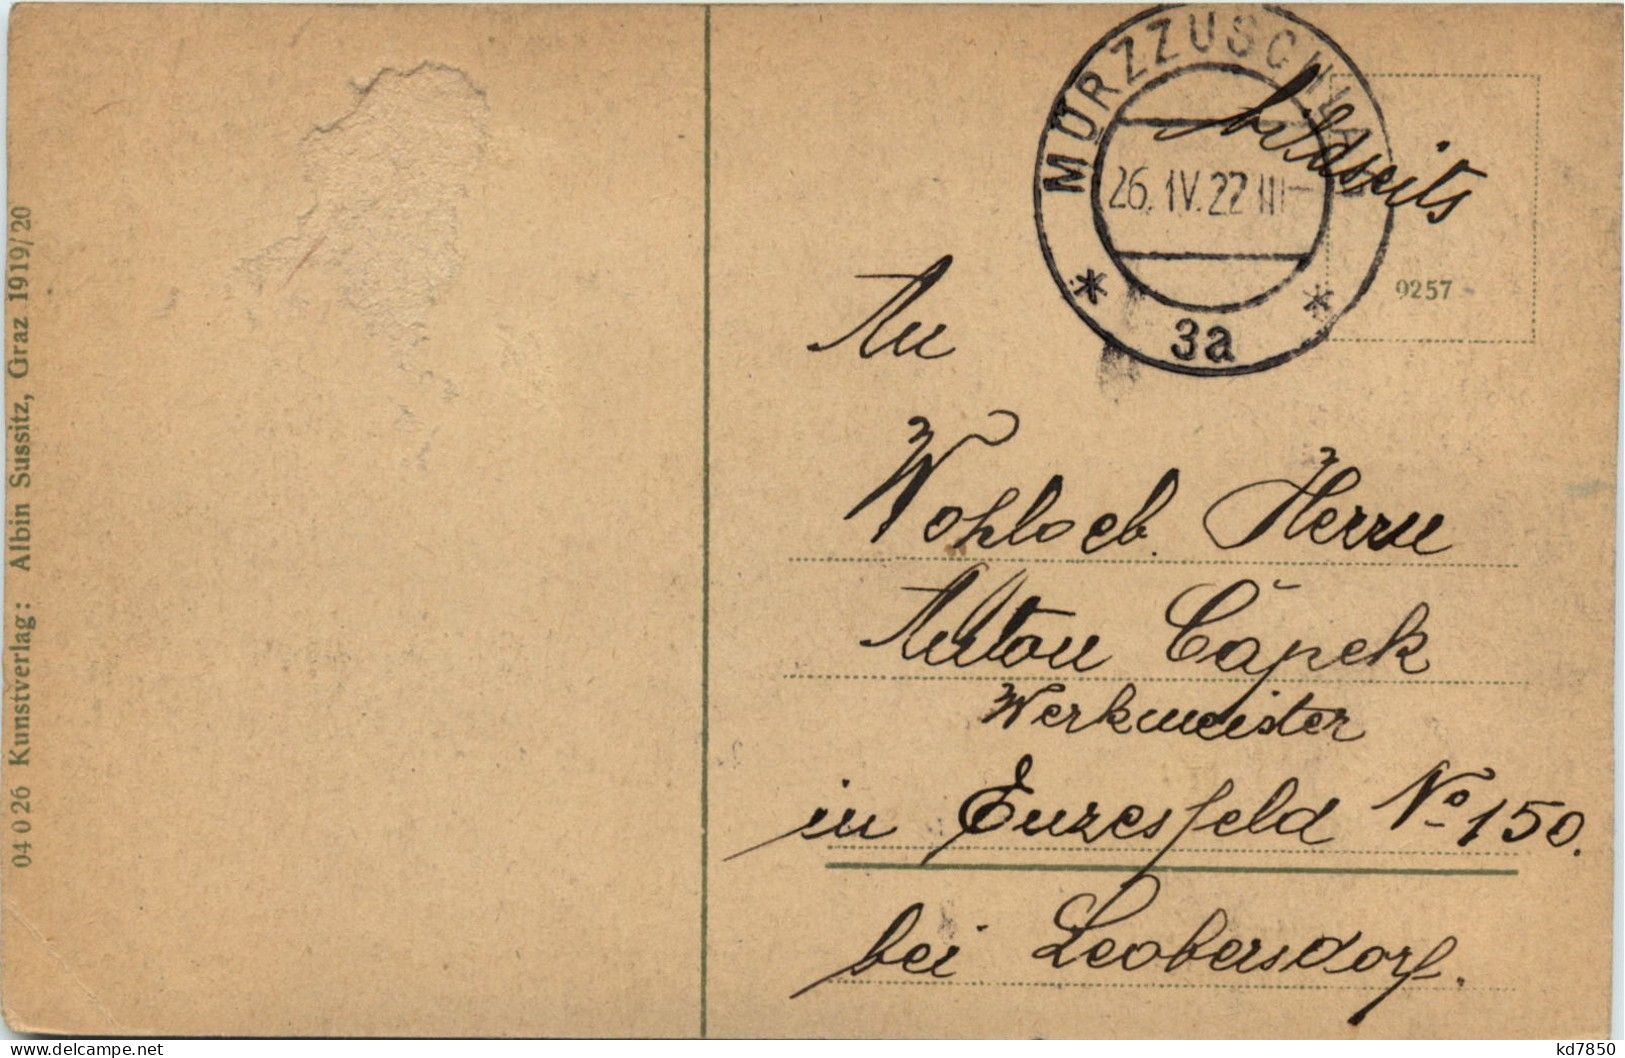 04 026 Kunstverlag: Albin Sussitz, Graz 1919/20
MÜRZZUSCHLAG
26.IV.22 III
* 3a *
bildseits
9257
An
Wohlloeb. Herrn
Anton Čapek
Werkmeister
in Enzesfeld No 150.
bei Leobersdorf.
kd7850
Www.delcampe.net